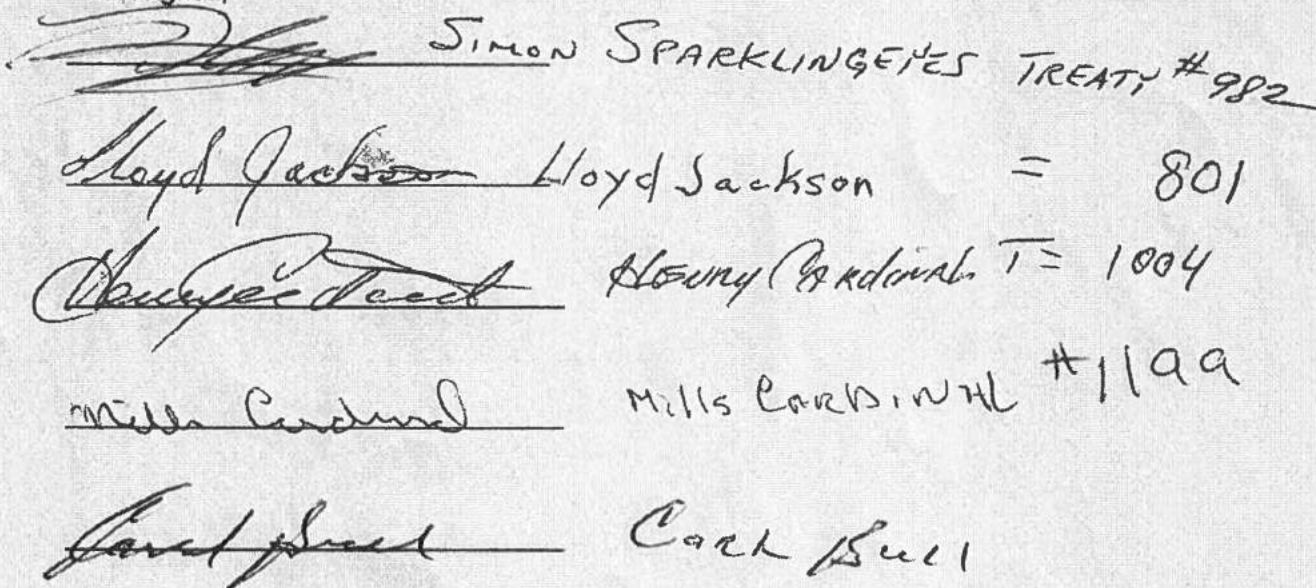 SIMON SPARKLINGEYES TREATY #982
Lloyd Jackson Lloyd Jackson = 801
Henry Cardinal T= 1004
Mills Cardinal Mills CARDINAL #1199
Carl Bull